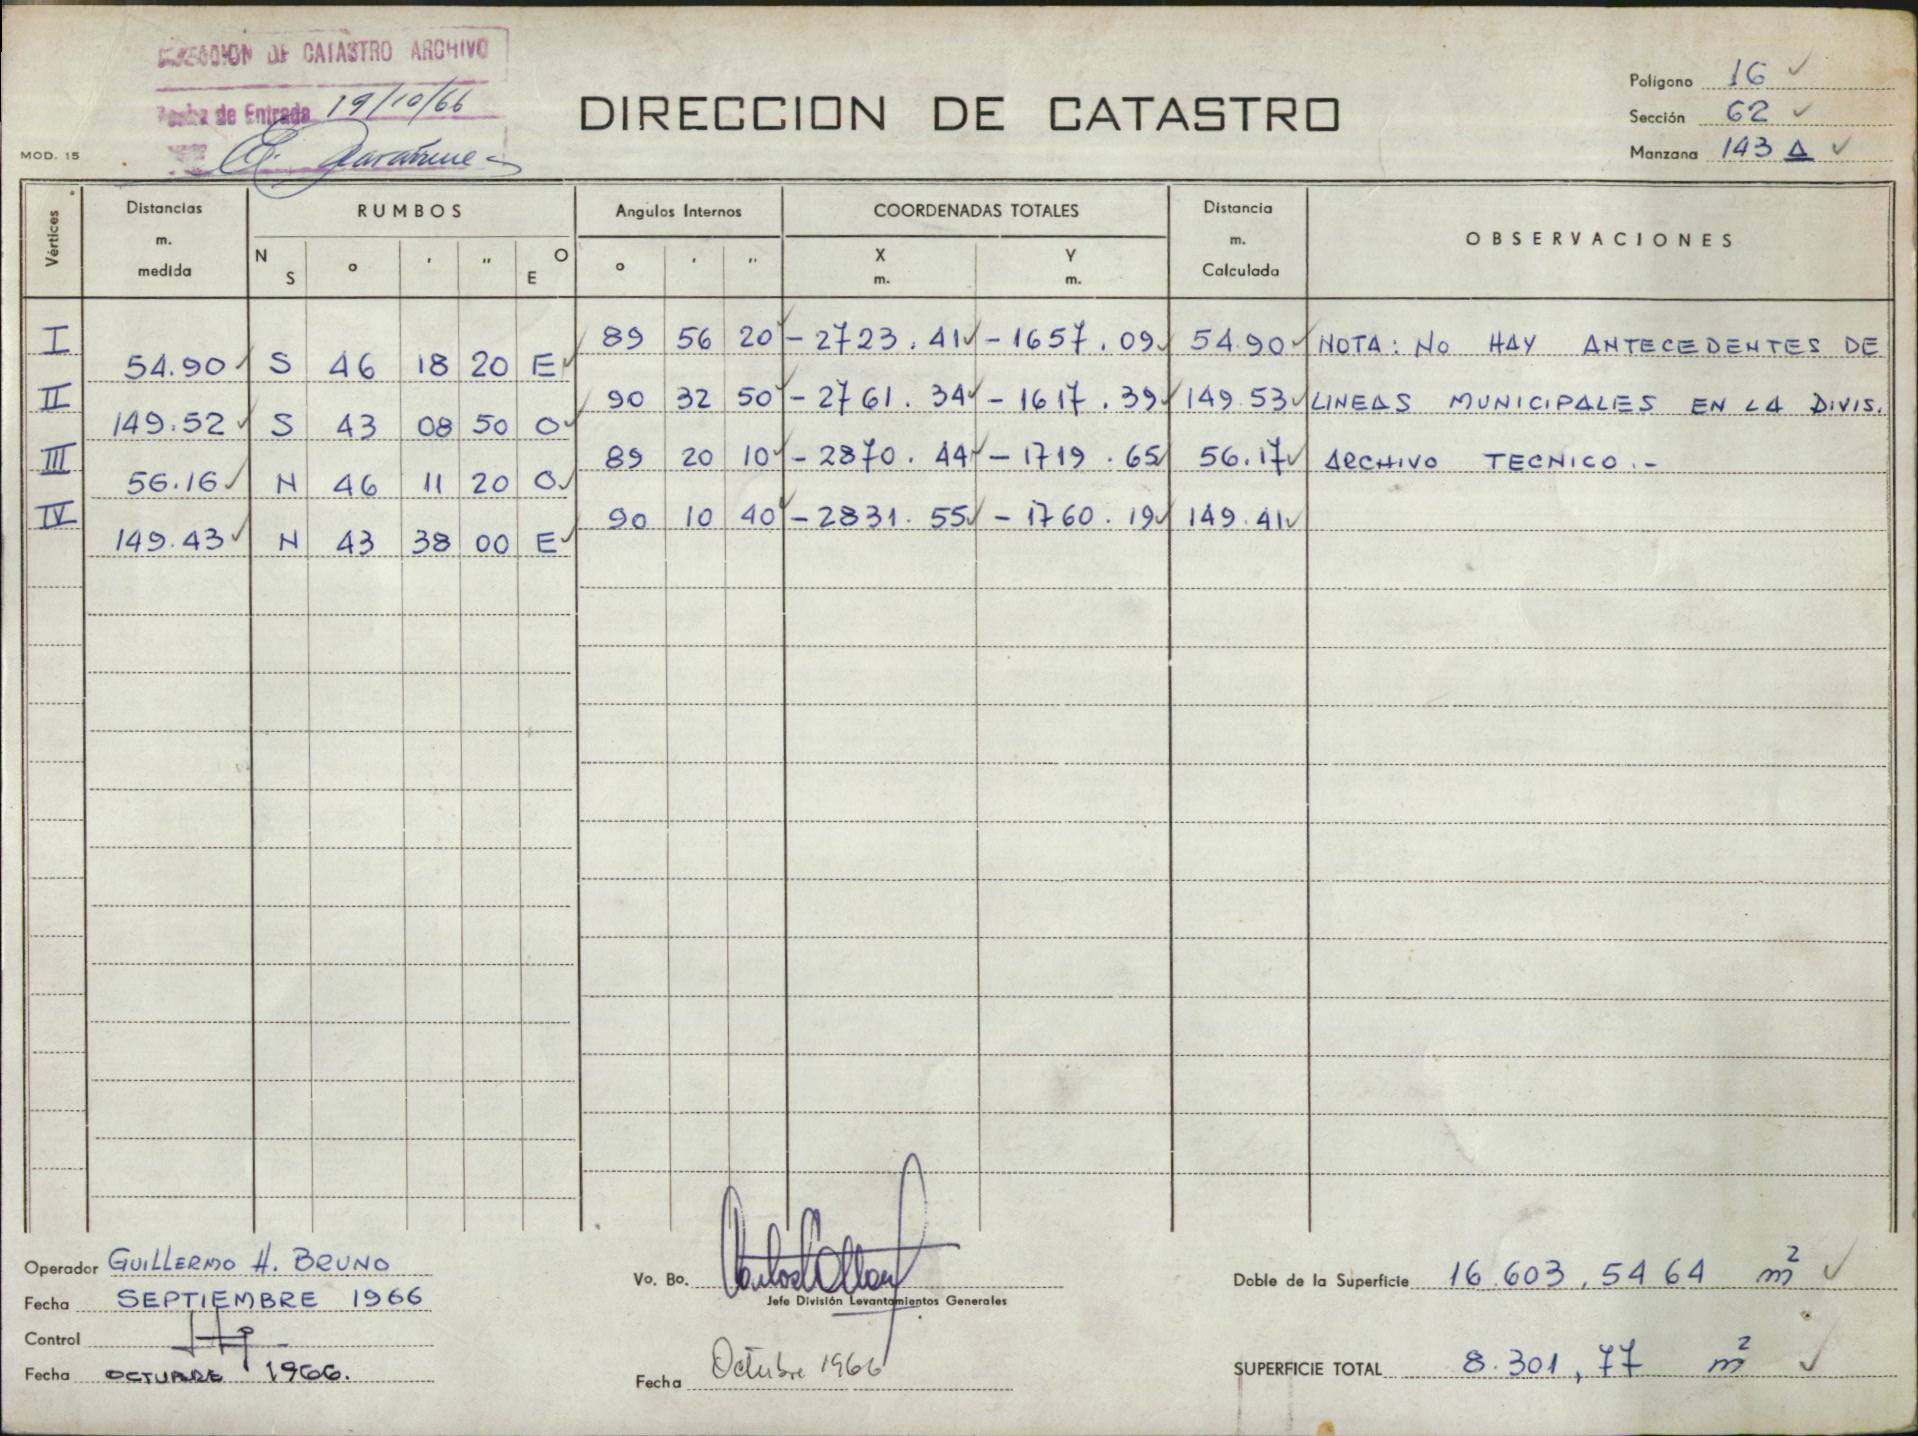 DIRECCION DE CATASTRO ARCHIVO
Fecha de Entrada 19/10/66
MOD. 15
DIRECCION DE CATASTRO
Polígono 16 ✓
Sección 62 ✓
Manzana 143 Δ ✓
Vértices Distancias m. medida RUMBOS Angulos Internos COORDENADAS TOTALES Distancia m. Calculada OBSERVACIONES
N S ° ' " O E ° ' " X m. Y m.
I 89 56 20 -2723.41 -1657.09 54.90 NOTA: No HAY ANTECEDENTES DE
54.90 S 46 18 20 E
II 90 32 50 -2761.34 -1617.39 149.53 LINEAS MUNICIPALES EN LA DIVIS.
149.52 S 43 08 50 O
III 89 20 10 -2870.44 -1719.65 56.17 ARCHIVO TECNICO.-
56.16 N 46 11 20 O
IV 90 10 40 -2831.55 -1760.19 149.41
149.43 N 43 38 00 E
Operador GUILLERMO H. BRUNO
Fecha SEPTIEMBRE 1966
Control
Fecha OCTUBRE 1966.
Vo. Bo.
Jefe División Levantamientos Generales
Fecha Octubre 1966
Doble de la Superficie 16.603,5464 m² ✓
SUPERFICIE TOTAL 8.301,77 m² ✓